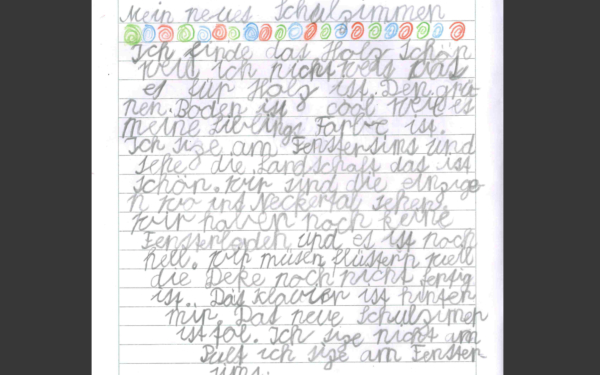 Mein neues Schulzimmer
Ich finde das Holz Schön
weil ich nicht weis was
es für Holz ist. Den grü-
nen Boden ist cool weil es
meine Lieblings Farbe ist.
Ich size am Fenstersims und
sehe die Landschaft das ist
schön. Wir sind die einzige-
n wo ins Neckertal sehen.
Wir haben noch keine
Fensterladen und es ist noch
hell. Wir müsen flüstern weil
die Deke noch nicht fertig
ist. Das Klavier ist hinter
mir. Das neue Schulzimer
ist tol. Ich size nicht am
Pult ich size am Fenster-
sims.